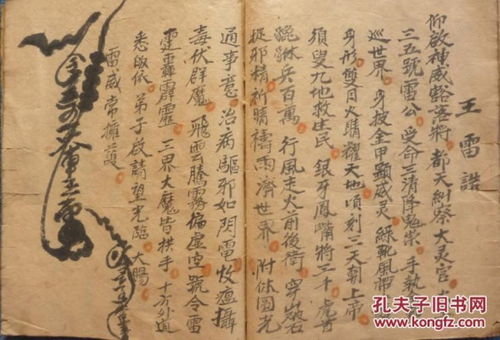 王雷誥
仰啟神威豁落將 都天糾察大灵官
三五號雷公 受命三清降鬼祟 手執
巡世界 身披金甲顯威灵 綠靴風帶
身形 雙目火睛耀天地 頃刻三天朝上帝
須臾九地救生民 銀牙鳳嘴將三千 虎首
貔貅兵百萬 行風走火前後衛 穿岩
捉邪精 祈晴禱雨濟世界 附体圓光
通事意 治病驅邪如閃電 收瘟攝
毒伏群魔 飛雲騰霧偏虛空 號令雷
霆轟霹靂 三界大魔皆拱手 十方外道
悉皈依 弟子啟請望光臨 大賜
雷威常擁護
孔夫子旧书网
www.kongfz.com